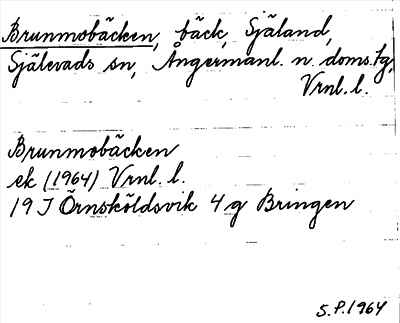 Brunmobäcken, bäck, Själand,
Själevads sn, Ångermanl. n. doms. tg,
Vrnl. l.
Brunmobäcken
ek (1964) Vrnl. l.
19 J Örnsköldsvik 4 g Bringen
S.P. 1964